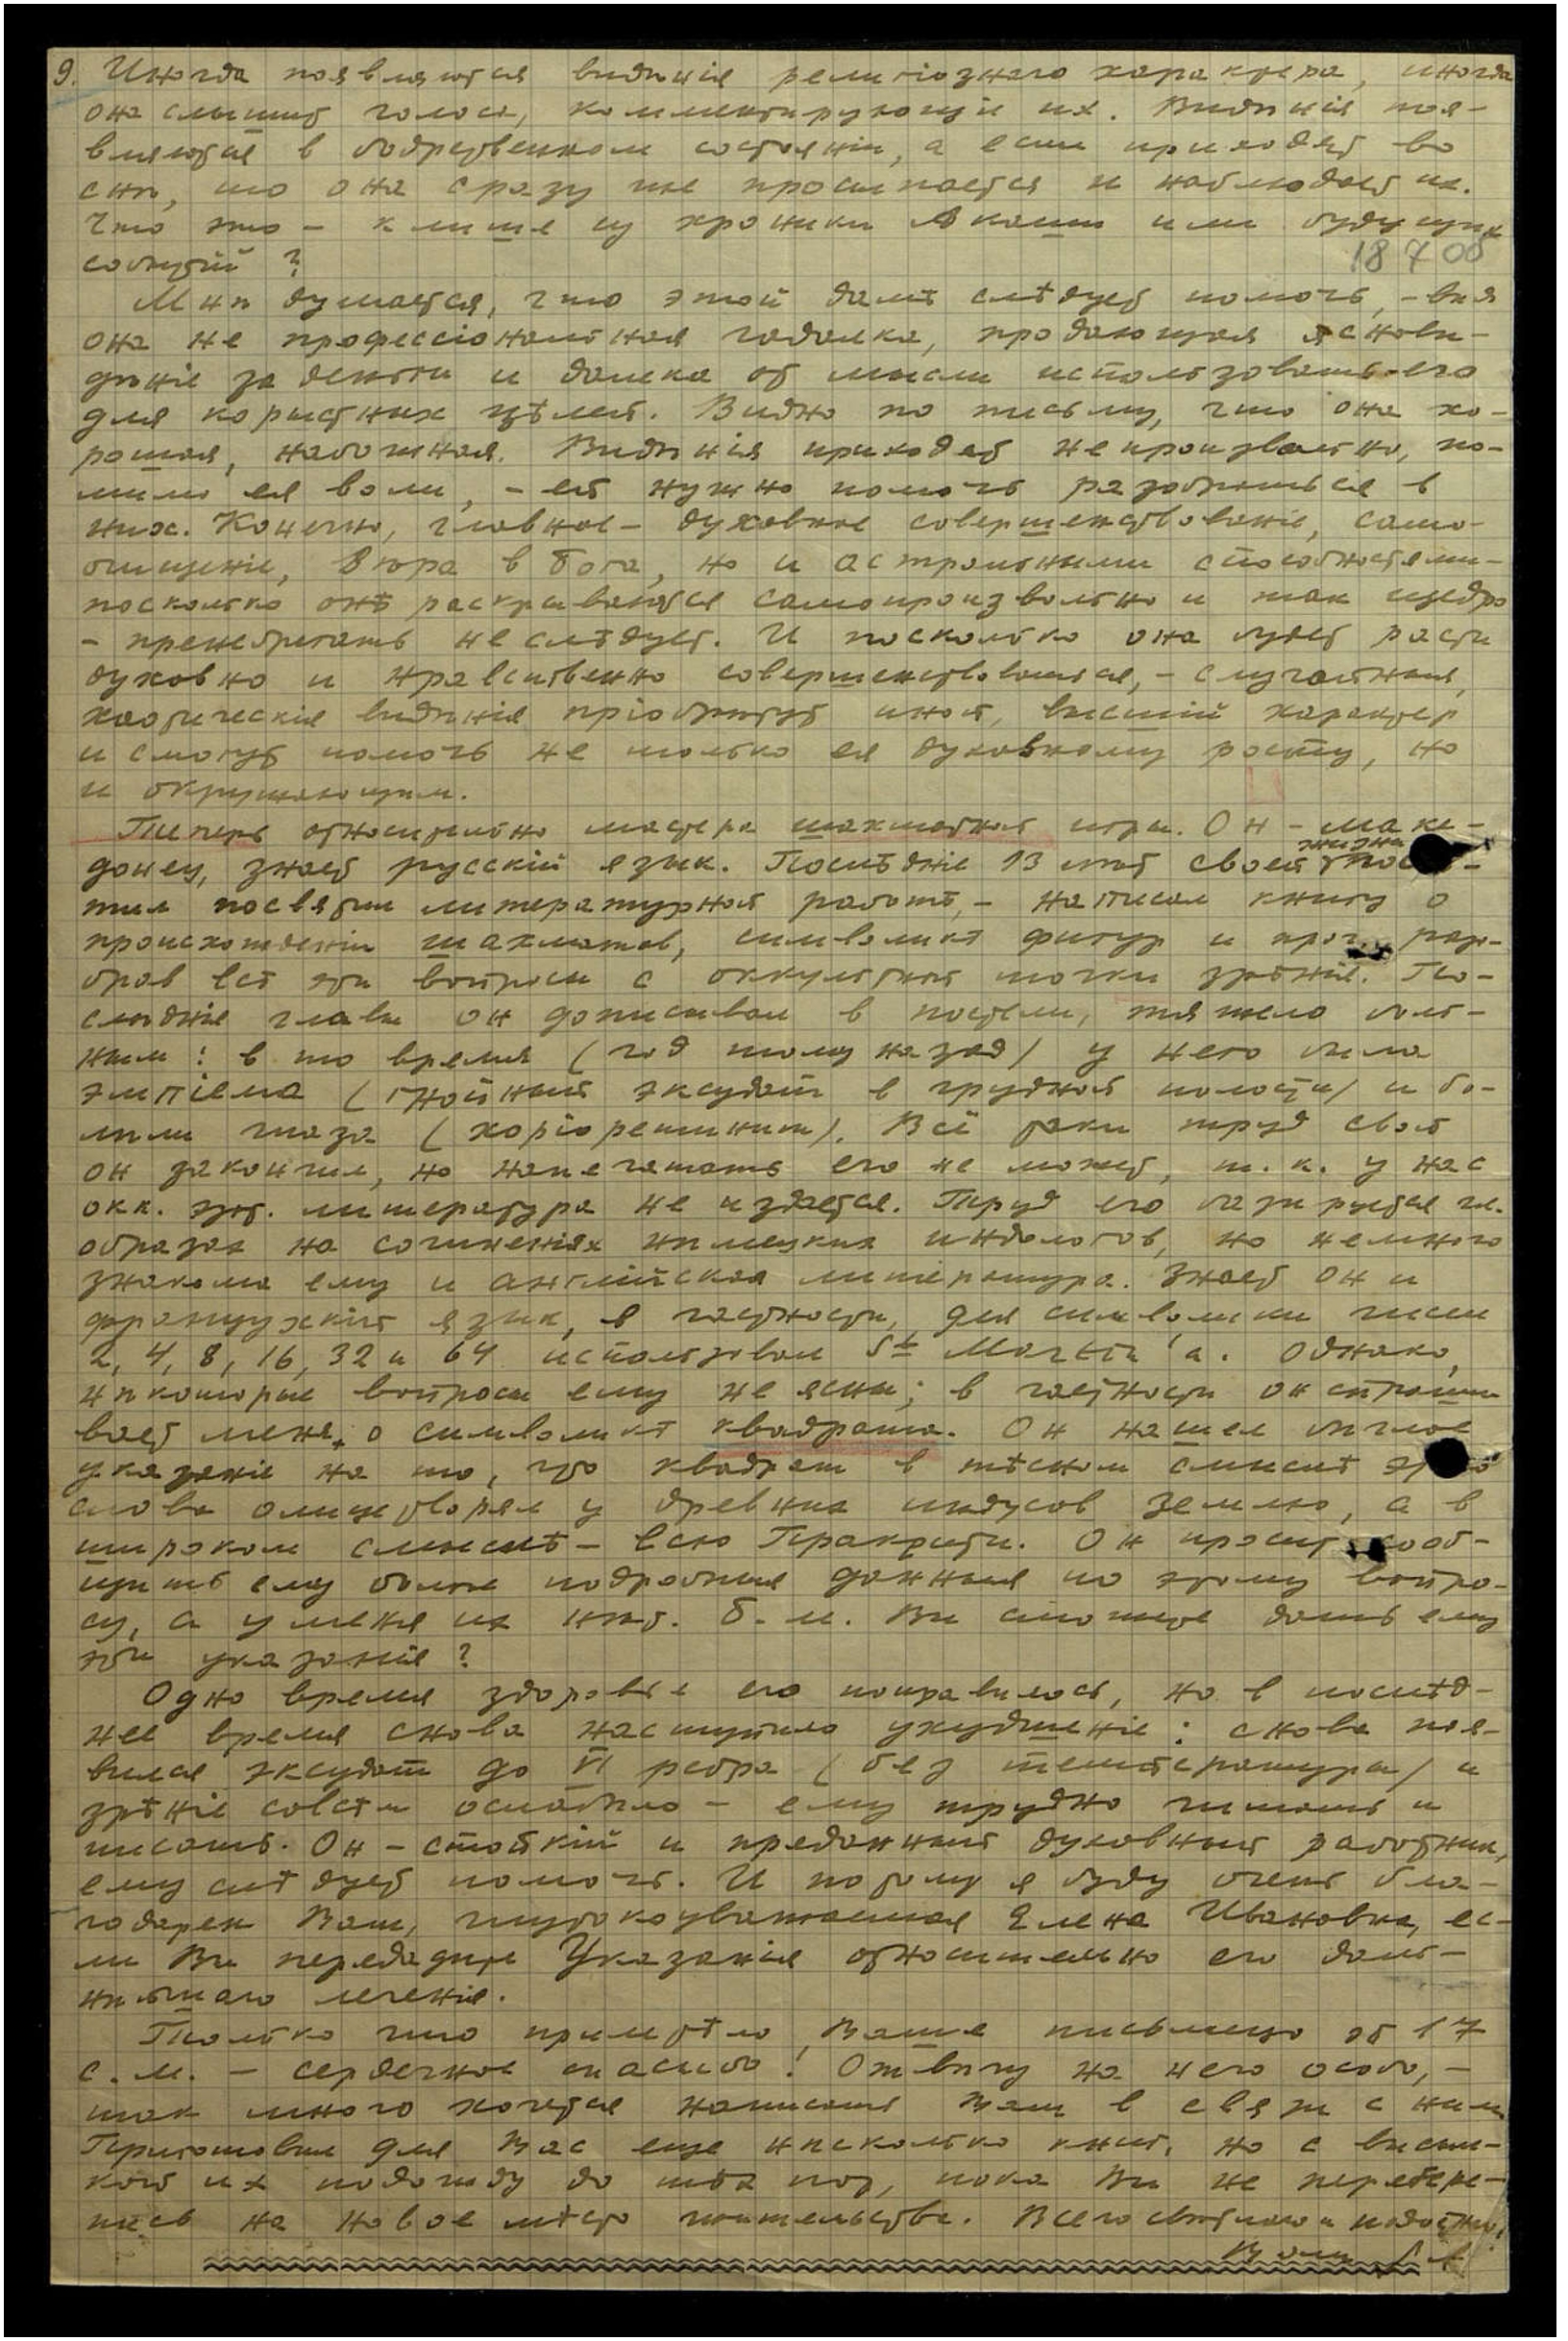 9. Иногда появляются видѣнія религіознаго характера, иногда
она слышит голоса, комментирующіе их. Видѣнія поя-
вляются в бодрственном состояніи, а если приходят во
снѣ, то она сразу же просыпается и наблюдает их.
Что это – клише из хроники Акаши или будущих
событій?
18700
Мнѣ думается, что этой дамѣ слѣдует помочь, – вѣдь
она не профессіональная гадалка, продающая яснови-
дѣніе за деньги и далека от мысли использовать его
для корыстных цѣлей. Видно по письму, что она хо-
рошая, набожная. Видѣнія приходят непроизвольно, по-
мимо ея воли, – ей нужно помочь разобраться в
них. Конечно, главное – духовное совершенствованіе, само-
очищеніе, вѣра в Бога, но и астральными способностями –
посколько онѣ раскрываются самопроизвольно и так щедро
– пренебрегать не слѣдует. И посколько она будет расти
духовно и нравственно совершенствоваться, – случайныя,
хаотическія видѣнія пріобрѣтут иной, высшій характер
и смогут помочь не только ея духовному росту, но
и окружающим.
Теперь относительно мастера шахматной игры. Он – маке-
донец, знает русскій язык. Послѣдніе 13 лѣт своей жизни
посвятил литературной работѣ, – написал книгу о
происхожденіи шахматов, символикѣ фигур и проч., разо-
брав всѣ эти вопросы с оккультной точки зрѣнія. По-
слѣднія главы он дописывал в постели, тяжело боль-
ным: в то время (год тому назад) у него была
эмпіема (гнойный эксудат в грудной полости) и бо-
лѣли глаза (хоріоретинит). Всё таки труд свой
он закончил, но напечатать его не может, т. к. у нас
окк. эзот. литература не издается. Труд его базируется гл.
образом на сочиненіях нѣмецких индологов, но немного
знакома ему и англійская литература. Знает он и
французскій язык, в частности, для символики чисел
2, 4, 8, 16, 32 и 64 использовал St Martin'a. Однако,
нѣкоторые вопросы ему не ясны; в частности он спраши-
вает меня о символикѣ квадрата. Он нашел бѣглое
указаніе на то, что квадрат в тѣсном смыслѣ этого
слова олицетворял у древних индусов Землю, а в
широком смыслѣ – всю Пракрити. Он просит сооб-
щить ему болѣе подробныя данныя по этому вопро-
су, а у меня их нѣт. Б. м. Вы сможете дать ему
эти указанія?
Одно время здоровье его поправилось, но в послѣд-
нее время снова наступило ухудшеніе: снова поя-
вился эксудат до VI ребра (без температуры) и
зрѣніе совсѣм ослабѣло – ему трудно читать и
писать. Он – стойкій и преданный духовный работник,
ему слѣдует помочь. И потому я буду очень бла-
годарен Вам, глубокоуважаемая Елена Ивановна, ес-
ли Вы передадите Указанія относительно его даль-
нѣйшаго леченія.
Только что прилетѣло Ваше письмецо от 17
с. м. – сердечное спасибо! Отвѣчу на него особо, –
так много хочется написать Вам в связи с ним.
Приготовил для Вас еще нѣсколько книг, но с высыл-
кой их подожду до тѣх пор, пока Вы не перебере-
тесь на новое мѣсто жительства. Всего свѣтлаго и радостнаго!
Ваш